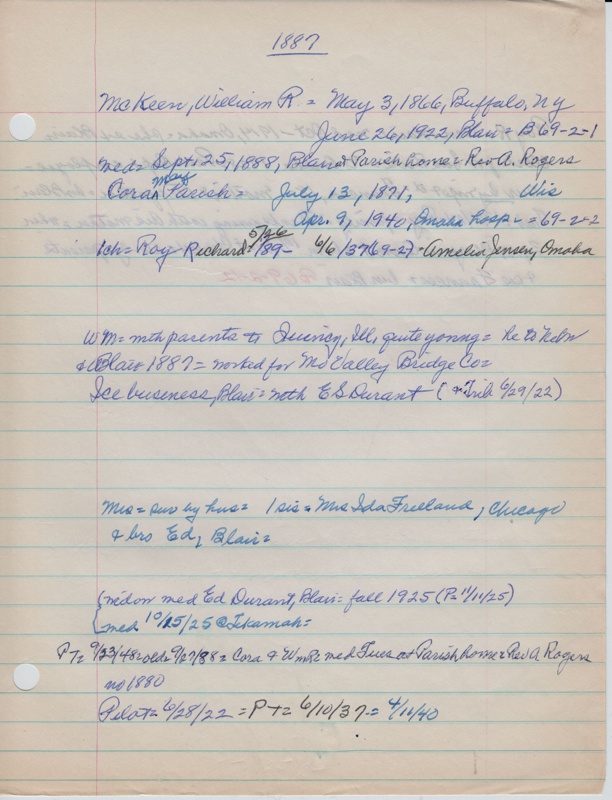 1887
McKeen, William R. = May 3, 1866, Buffalo, Ny
June 26, 1922, Blair = B 69-2-1
med = Sept. 25, 1888, Blair at Parish home = Rev A. Rogers
Cora May Parish = July 13, 1871, Wis
Apr. 9, 1940, Omaha hosp = 69-2-2
1ch = Roy Richard = 5/26/89 - 6/6/37 (69-2-) = Amelia Jensen, Omaha
Wm = with parents to Quincy, Ill, quite young = he to Nebr
& Blair 1887 = worked for Mo Valley Bridge Co =
Ice business, Blair = with E S Durant ( = Trib 6/29/22)
Mrs = sur by hus = 1 sis = Mrs Ida Freeland, Chicago
& bro Ed, Blair =
(widow med Ed Durant, Blair = fall 1925 (P = 11/11/25)
med 10/15/25 @ Tekamah =
PT = 9/23/48 = old = 9/27/88 = Cora & Wm R med Tues at Parish home = Rev A Rogers
no 1880
Pilot = 6/28/22 = PT = 6/10/37 = 4/11/40